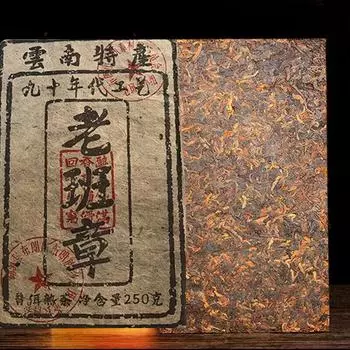 雲南特産
九十年代工艺
老班章
普洱熟茶 净含量250克